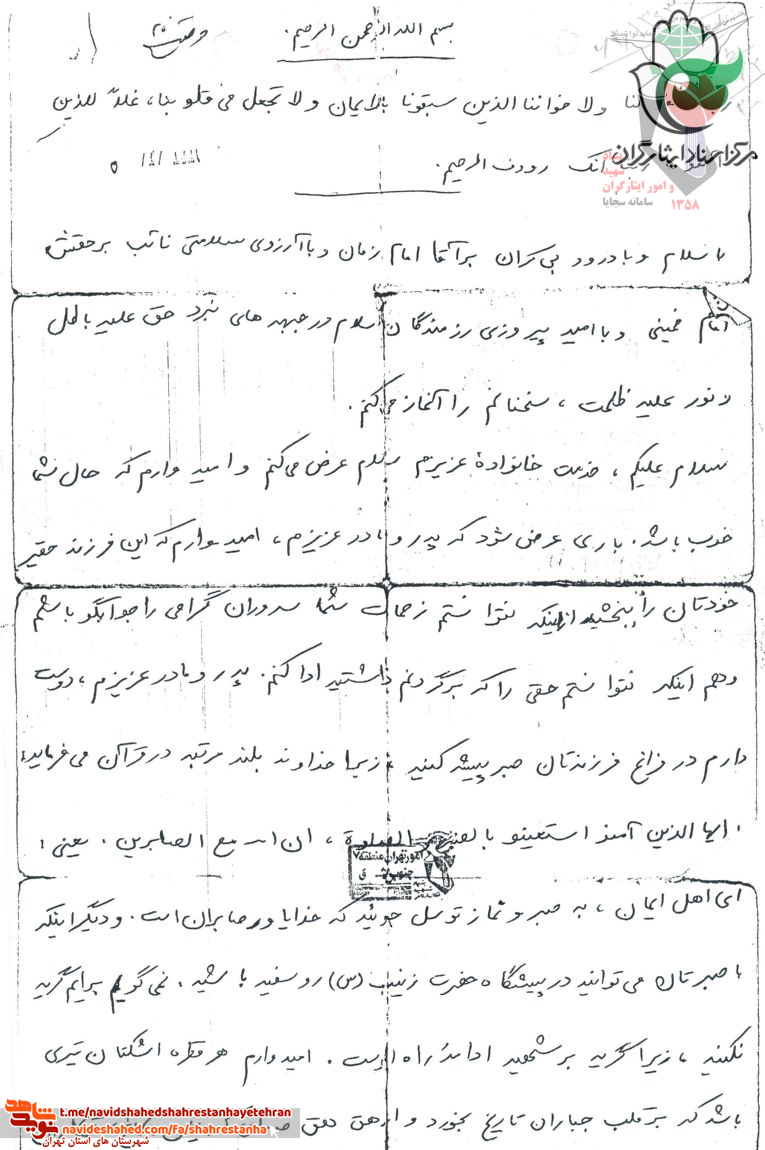 بسم الله الرحمن الرحیم.
ولاخواننا الذین سبقونا بالایمان ولا تجعل فی قلوبنا، غلاً للذین
انک رووف الرحیم.
مرکز اسناد ایثارگران
شهید
و امور ایثارگران
سامانه سجایا
۱۳۵۸
با سلام و با درود بی کران بر آقا امام زمان و با آرزوی سلامتی نائب برحقش
امام خمینی و با امید پیروزی رزمندگان اسلام در جبهه های نبرد حق علیه باطل
و نور علیه ظلمت، سخنانم را آغاز می کنم.
سلام علیکم، خدمت خانوادۀ عزیزم سلام عرض می کنم و امیدوارم که حال شما
خوب باشد. باری عرض شود که پدر و مادر عزیزم، امیدوارم که این فرزند حقیر
خودتان را ببخشید از اینکه نتوانستم زحمات شما سروران گرامی را جوابگو باشم
و هم اینکه نتوانستم حقی را که بر گردنم داشتید ادا کنم. پدر و مادر عزیزم، دوست
دارم در فراغ فرزندتان صبر پیشه کنید، زیرا خداوند بلند مرتبه در قرآن می فرماید:
ایها الذین آمنو استعینو بالصبر و الصلوة، ان الله مع الصابرین. یعنی:
امور تهران منطقه ۷
ای اهل ایمان، به صبر و نماز توسل جوئید که خدا یاور صابران است. و دیگر اینکه
با صبرتان می توانید در پیشگاه حضرت زینب (س) روسفید باشید. نمی گویم برایم گریه
نکنید، زیرا گریه بر شهید ادامۀ راه اوست. امیدوارم هر قطره اشکتان تیری
باشد که بر قلب جباران تاریخ بخورد و از حق
شاهد
نوید
t.me/navidshahedshahrestanhayetehran
navideshahed.com/fa/shahrestanha
شهرستان های استان تهران